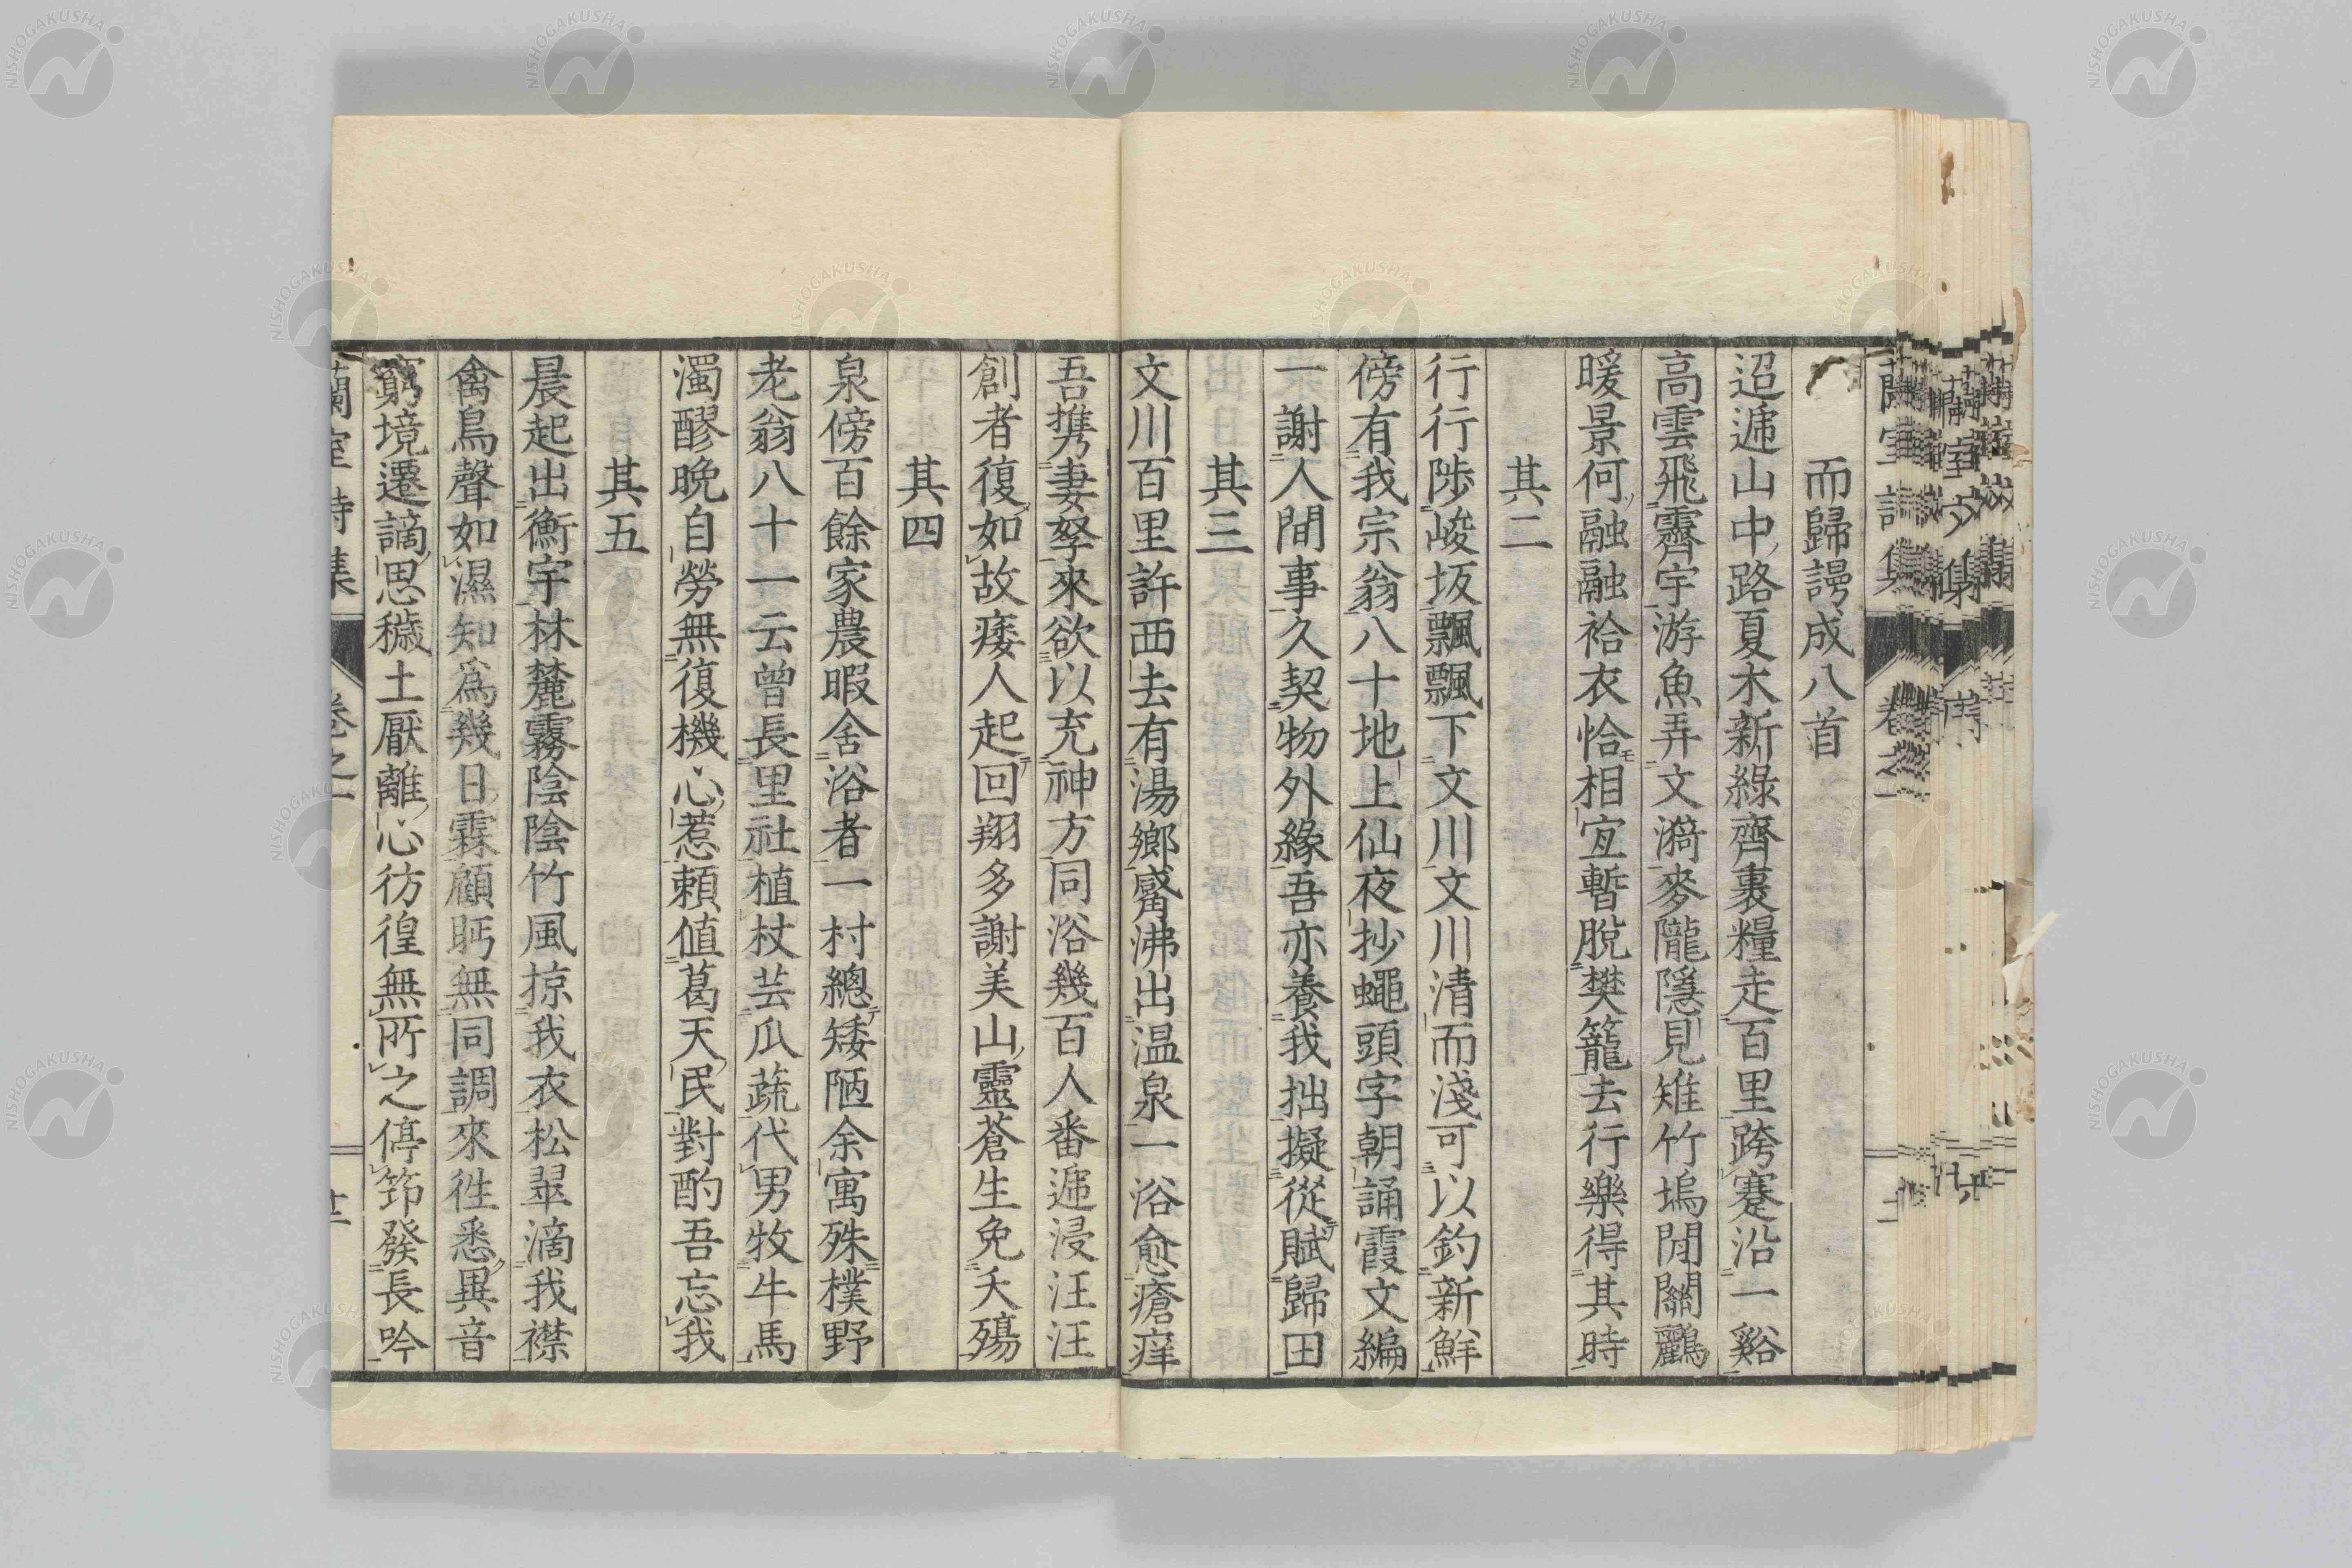 而歸謾成八首
迢遞山中路夏木新綠齊裹糧走百里跨蹇沿一谿
高雲飛霽宇游魚弄文漪麥隴隱見雉竹塢閒關鸝
暖景何融融袷衣恰相宜暫脫樊籠去行樂得其時
其二
行行陟峻坂飄飄下文川文川清而淺可以釣新鮮
傍有我宗翁八十地上仙夜抄蠅頭字朝誦霞文編
一謝人間事久契物外緣吾亦養我拙擬從賦歸田
其三
文川百里許西去有湯鄉觱沸出温泉一浴愈瘡痒
吾携妻孥來欲以充神方同浴幾百人番遞浸汪汪
創者復如故痿人起回翔多謝美山靈蒼生免夭殤
其四
泉傍百餘家農暇舍浴者一村總矮陋余寓殊樸野
老翁八十一云曾長里社植杖芸瓜蔬代男牧牛馬
濁醪晚自勞無復機心惹頼値葛天民對酌吾忘我
其五
晨起出衡宇林麓霧陰陰竹風掠我衣松翠滴我襟
禽鳥聲如濕知爲幾日霖顧眄無同調來徃悉異音
窮境遷謫思穢土厭離心彷徨無所之停笻發長吟
蘭室詩集 卷之一
蘭室詩集 卷之一
NISHOGAKUSHA